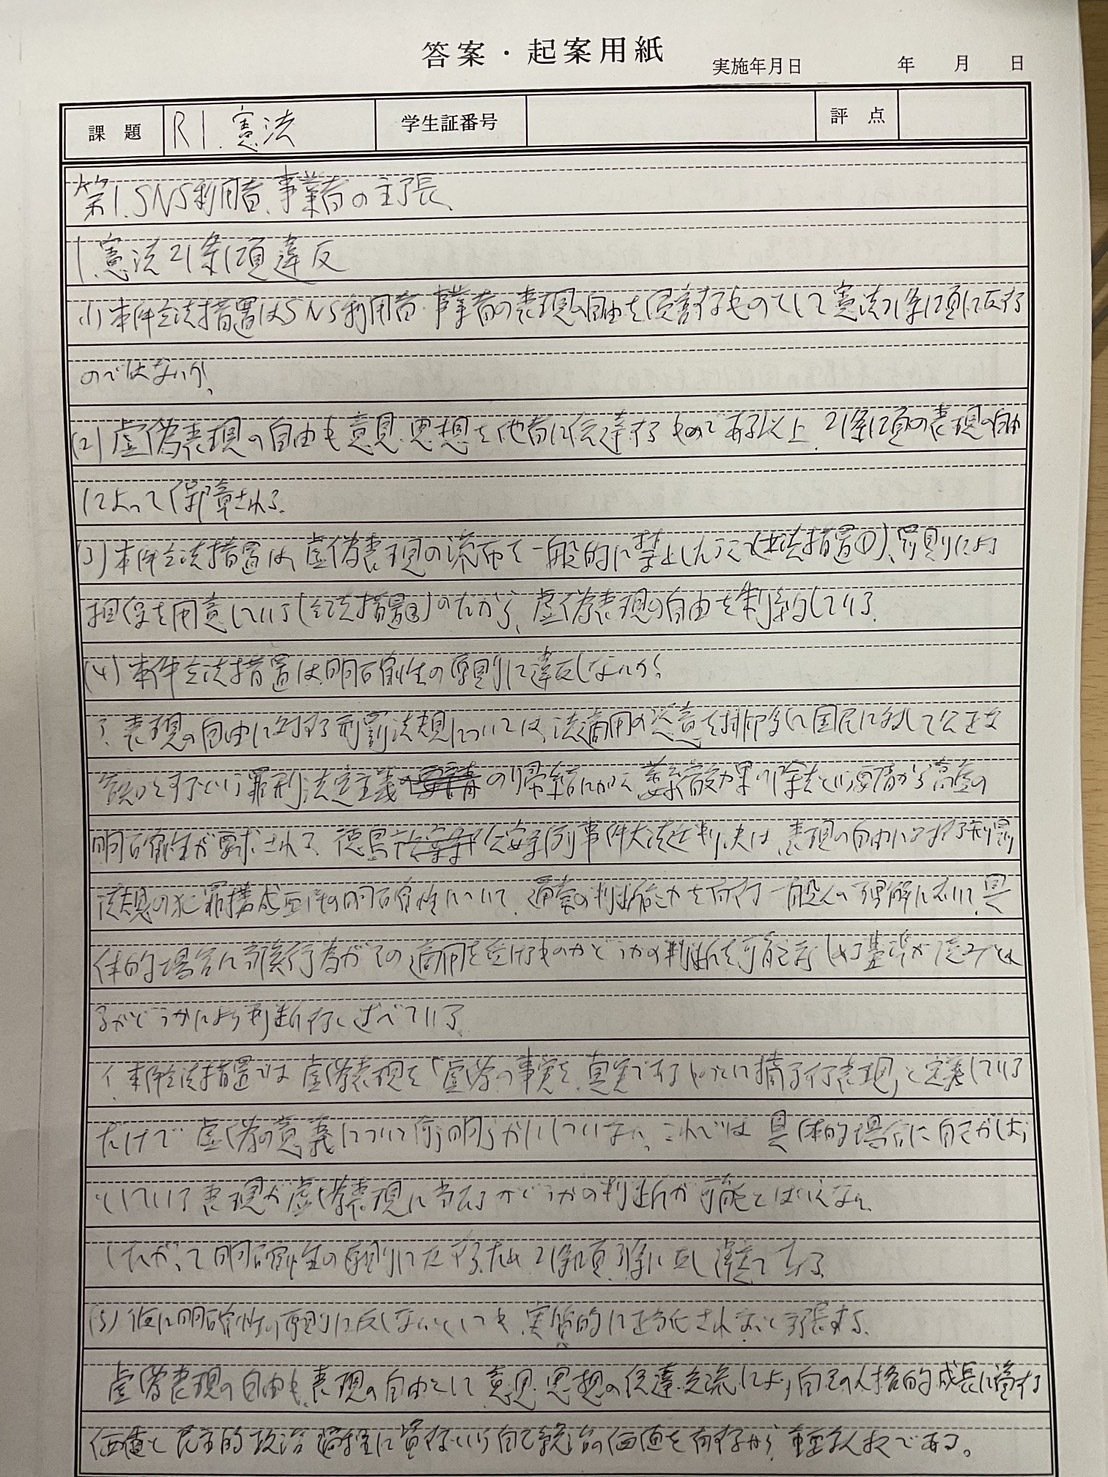 答案・起案用紙
実施年月日 年 月 日
課題 R1.憲法 学生証番号 評点
第1.SNS利用者、事業者の主張
1.憲法21条1項違反
(1)本件立法措置はSNS利用者・事業者の表現の自由を侵害するものとして憲法21条1項に反する
のではないか。
(2)虚偽表現の自由も意見・思想を他者に伝達するものである以上、21条1項の表現の自由
によって保障される。
(3)本件立法措置は、虚偽表現の流布を一般的に禁止したうえで(立法措置①)、罰則による
担保を用意している(立法措置③)のだから、虚偽表現の自由を制約している。
(4)本件立法措置は、明確性の原則に違反しないか。
ア.表現の自由に対する刑罰法規については、法適用の恣意を排除して国民に対して公正な
という罪刑法定主義の帰結にかえ萎縮効果の除去という要請から高度の
明確性が要求される。徳島市公安条例事件大法廷判決は、表現の自由に対する刑罰
法規の犯罪構成要件の明確性について、通常の判断能力を有する一般人の理解において、具
体的場合に当該行為がその適用を受けるものかどうかの判断を可能ならしめる基準が読みとれ
るかどうかにより判断すると述べている。
イ.本件立法措置では虚偽表現を「虚偽の事実を、真実であるものとして摘示する表現」と定義している
だけで虚偽の意義について何ら明らかにしていない。これでは具体的場合に自己がしよ
うとしている表現が虚偽表現に当たるかどうかの判断が可能とはいえない。
したがって明確性の原則に反するため、21条1項、31条に反し違憲である。
(5)仮に明確性の原則に反しないとしても、実質的に正当化されないと主張する。
虚偽表現の自由も、表現の自由として意見・思想の伝達・交流により自己の人格的成長に資する
価値と民主的政治過程に資するという自己統治の価値を有するから重要な人権である。